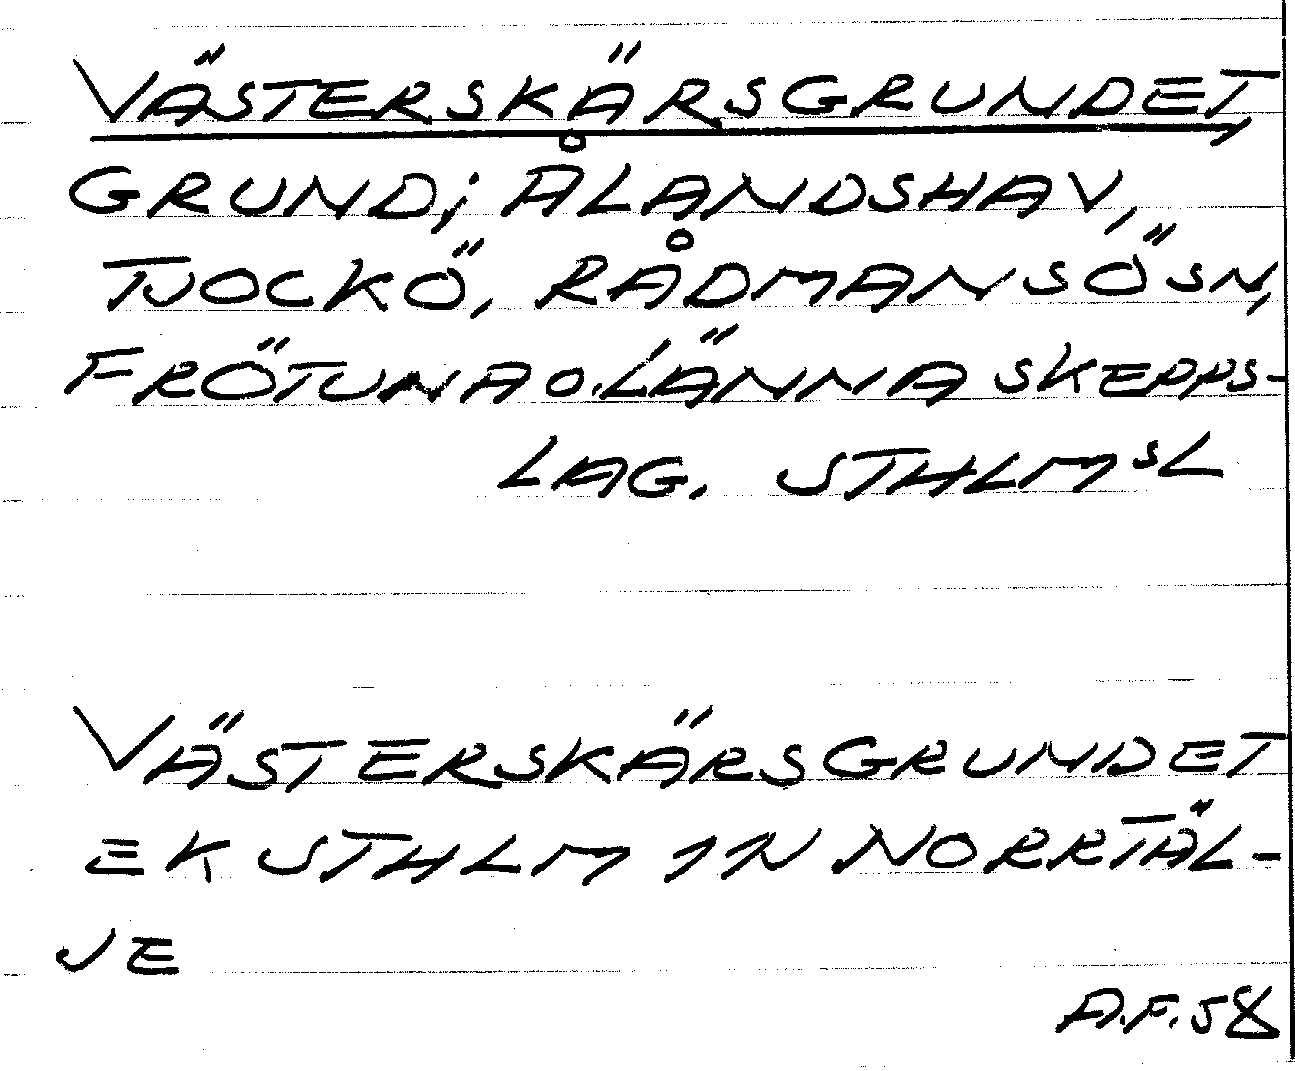 VÄSTERSKÄRSGRUNDET,
GRUND; ÅLANDSHAV,
TJOCKÖ, RÅDMANSÖSN,
FRÖTUNA O. LÄNNA SKEPPS-
LAG. STHLMSL
VÄSTERSKÄRSGRUNDET
EK STHLM 11N NORRTÄL-
JE
A.F. 58